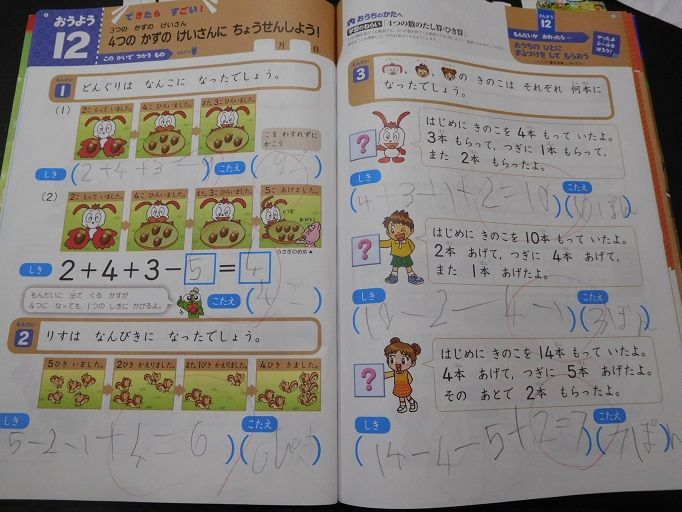 おうよう
12
できたら すごい!
3つの かずの けいさん
4つの かずの けいさんに ちょうせんしよう!
このかいで つかう もの
月 日
もんだい
1 どんぐりは なんこに なったでしょう。
(1)
2こ もって いました。
4こ ひろいました。
また 3こ ひろいました。
こを わすれずに
かこう
しき
(2+4+3
こたえ
(2)
2こ もって いました。
4こ ひろいました。
また 3こ ひろいました。
5こ あげました。
うさぎのめめ▲
しき 2+4+3-5=4
もんだいに 出て くる かずが
4つに なっても、1つの しきに かけるよ。
こたえ
(4こ)
もんだい
2 りすは なんびきに なったでしょう。
5ひき いました。
2ひき かえりました。
また1ぴき かえりました。
4ひき きました。
しき
5-2-1+4=6
こたえ
おうちのかたへ
学習のねらい 「4つの数のたし算・ひき算」
さんすう
12
もんだいが おわったら…
おうちの ひとに
まるつけを して もらおう
やったよ
シールを
はろう!
もんだい
3 の きのこは それぞれ 何本に
なったでしょう。
?
はじめに きのこを 4本 もって いたよ。
3本 もらって、つぎに 1本 もらって、
また 2本 もらったよ。
しき
(4+3+1+2=10)
こたえ
?
はじめに きのこを 10本 もって いたよ。
2本 あげて、つぎに 4本 あげて、
また 1本 あげたよ。
しき
(10-2-4-1)
こたえ
(3ぼん)
?
はじめに きのこを 14本 もって いたよ。
4本 あげて、つぎに 5本 あげたよ。
その あとで 2本 もらったよ。
しき
(14-4-5+2=7)
こたえ